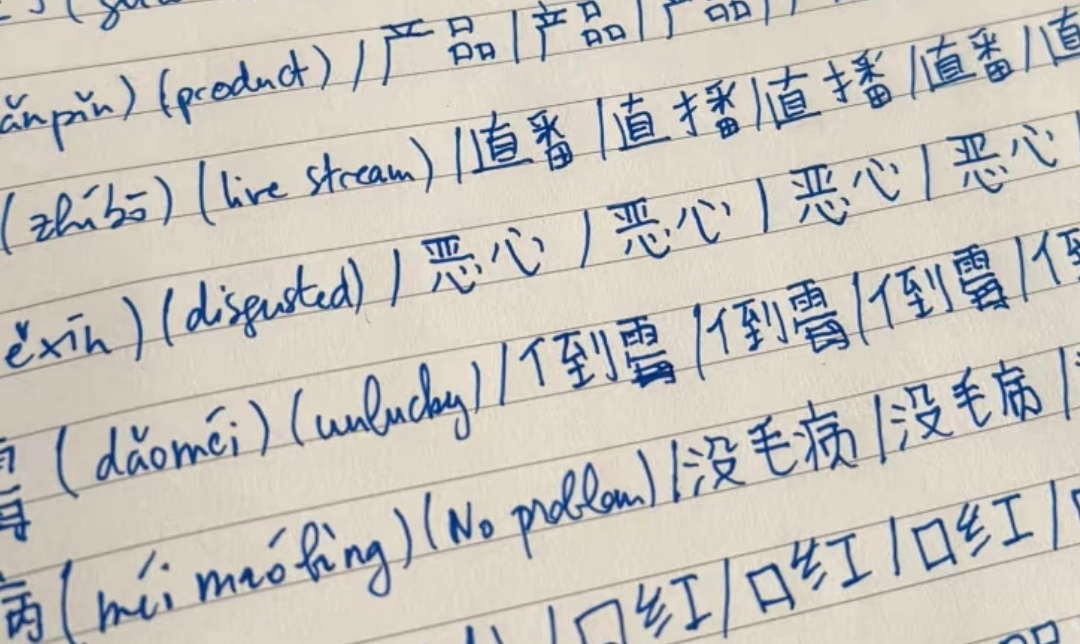 ǎnpǐn) (product) / 产品 | 产品 | 产品
(zhíbō) (live stream) / 直番 / 直播 / 直播 / 直番 / 直
ěxīn) (disgusted) / 恶心 / 恶心 / 恶心 / 恶心
霉 (dǎoméi) (unlucky) / 倒霉 / 倒霉 / 倒霉 / 倒
病 (méi máobìng) (No problem) / 没毛病 / 没毛病 /
/ 口红 / 口红 / 口红 /